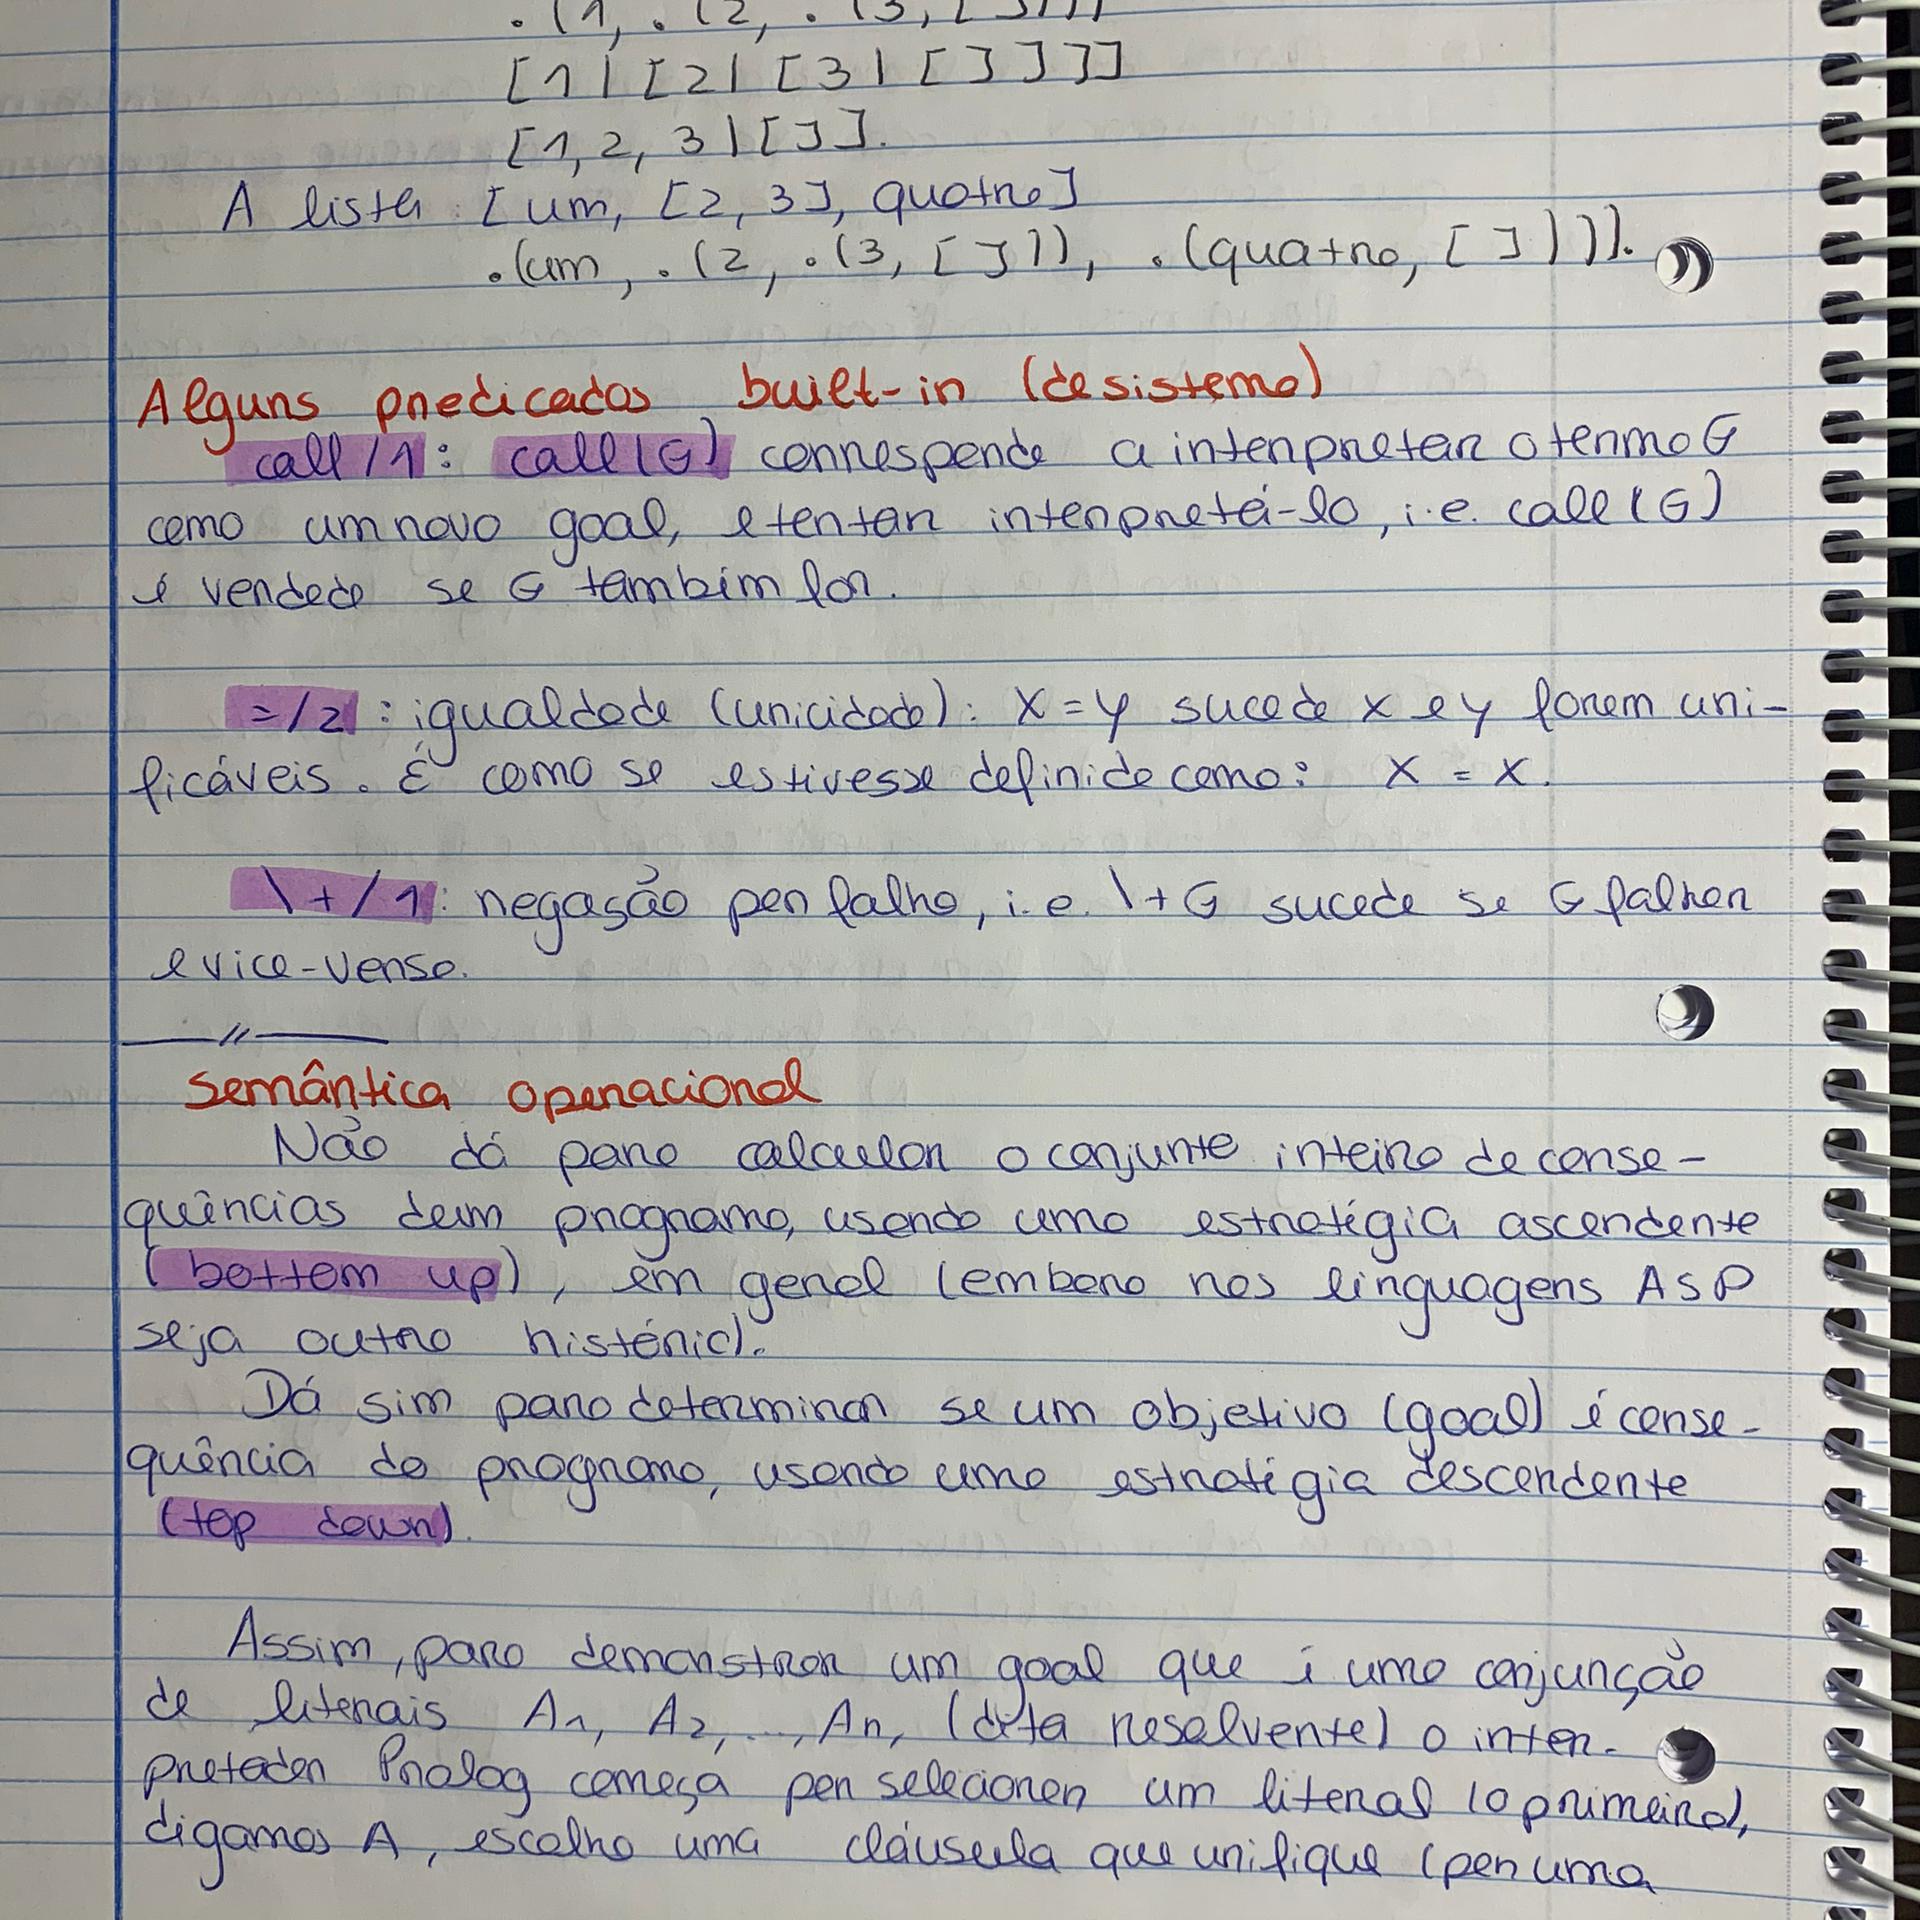 .(1, .(2, .(3, [])))
[1|[2|[3|[]]]]
[1,2,3|[]].
A lista: [um, [2,3], quatro]
.(um, .(2, .(3, [])), .(quatro, []))).
Alguns predicados built-in (de sistema)
call/1: call(G) corresponde a interpretar o termo G
como um novo goal, e tentar interpretá-lo, i.e. call(G)
é verdade se G também for.
=/2: igualdade (unicidade): X=Y sucede X e Y forem uni-
ficáveis. É como se estivesse definida como: X = X.
\+/1: negação por falha, i.e. \+G sucede se G falhar
e vice-versa.
Semântica operacional
Não dá para calcular o conjunto inteiro de conse-
quências dum programa, usando uma estratégia ascendente
(bottom up), em geral (embora nas linguagens ASP
seja outra história).
Dá sim para determinar se um objetivo (goal) é conse-
quência do programa, usando uma estratégia descendente
(top down).
Assim, para demonstrar um goal que é uma conjunção
de literais A1, A2, ..., An, (dita resolvente) o inter-
pretador Prolog começa por selecionar um literal (o primeiro),
digamos A, escolhe uma cláusula que unifique (por uma